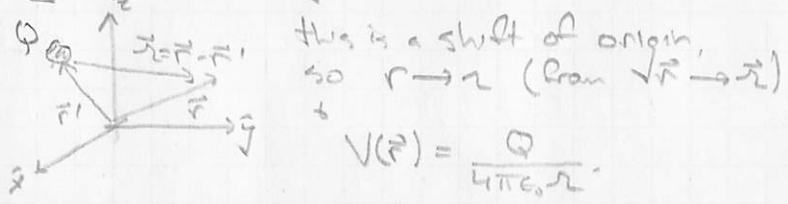 z
Q
𝓇⃗ = r⃗ - r⃗'
r⃗'
r⃗
ŷ
x̂
this is a shift of origin,
so r → 𝓇 (from r⃗ → 𝓇⃗)
V(r⃗) = Q / 4πε₀𝓇.